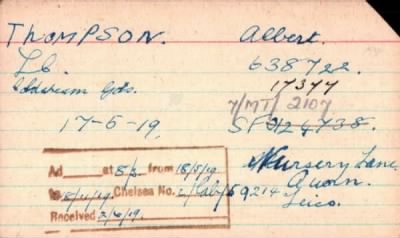 THOMPSON. Albert.
Lc. 638722.
Coldstream Gds. 17377
7/MT/2107
17-5-19. SF
Ad at 8/- from 18/5/19
to Chelsea No.
Received 2/6/19.
Nursery Lane.
Quorn.
Leics.